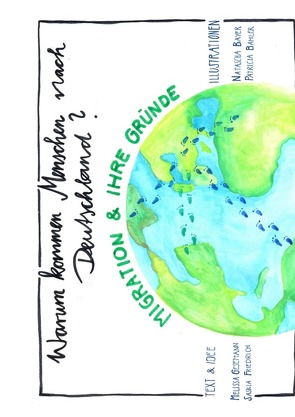 Warum kommen Menschen nach
Deutschland?
MIGRATION & IHRE GRÜNDE
TEXT & IDEE
MELISSA GEßMANN
SASKIA FRIEDRICH
ILLUSTRATIONEN
NATASCHA BAYER
PATRICIA BAHLER